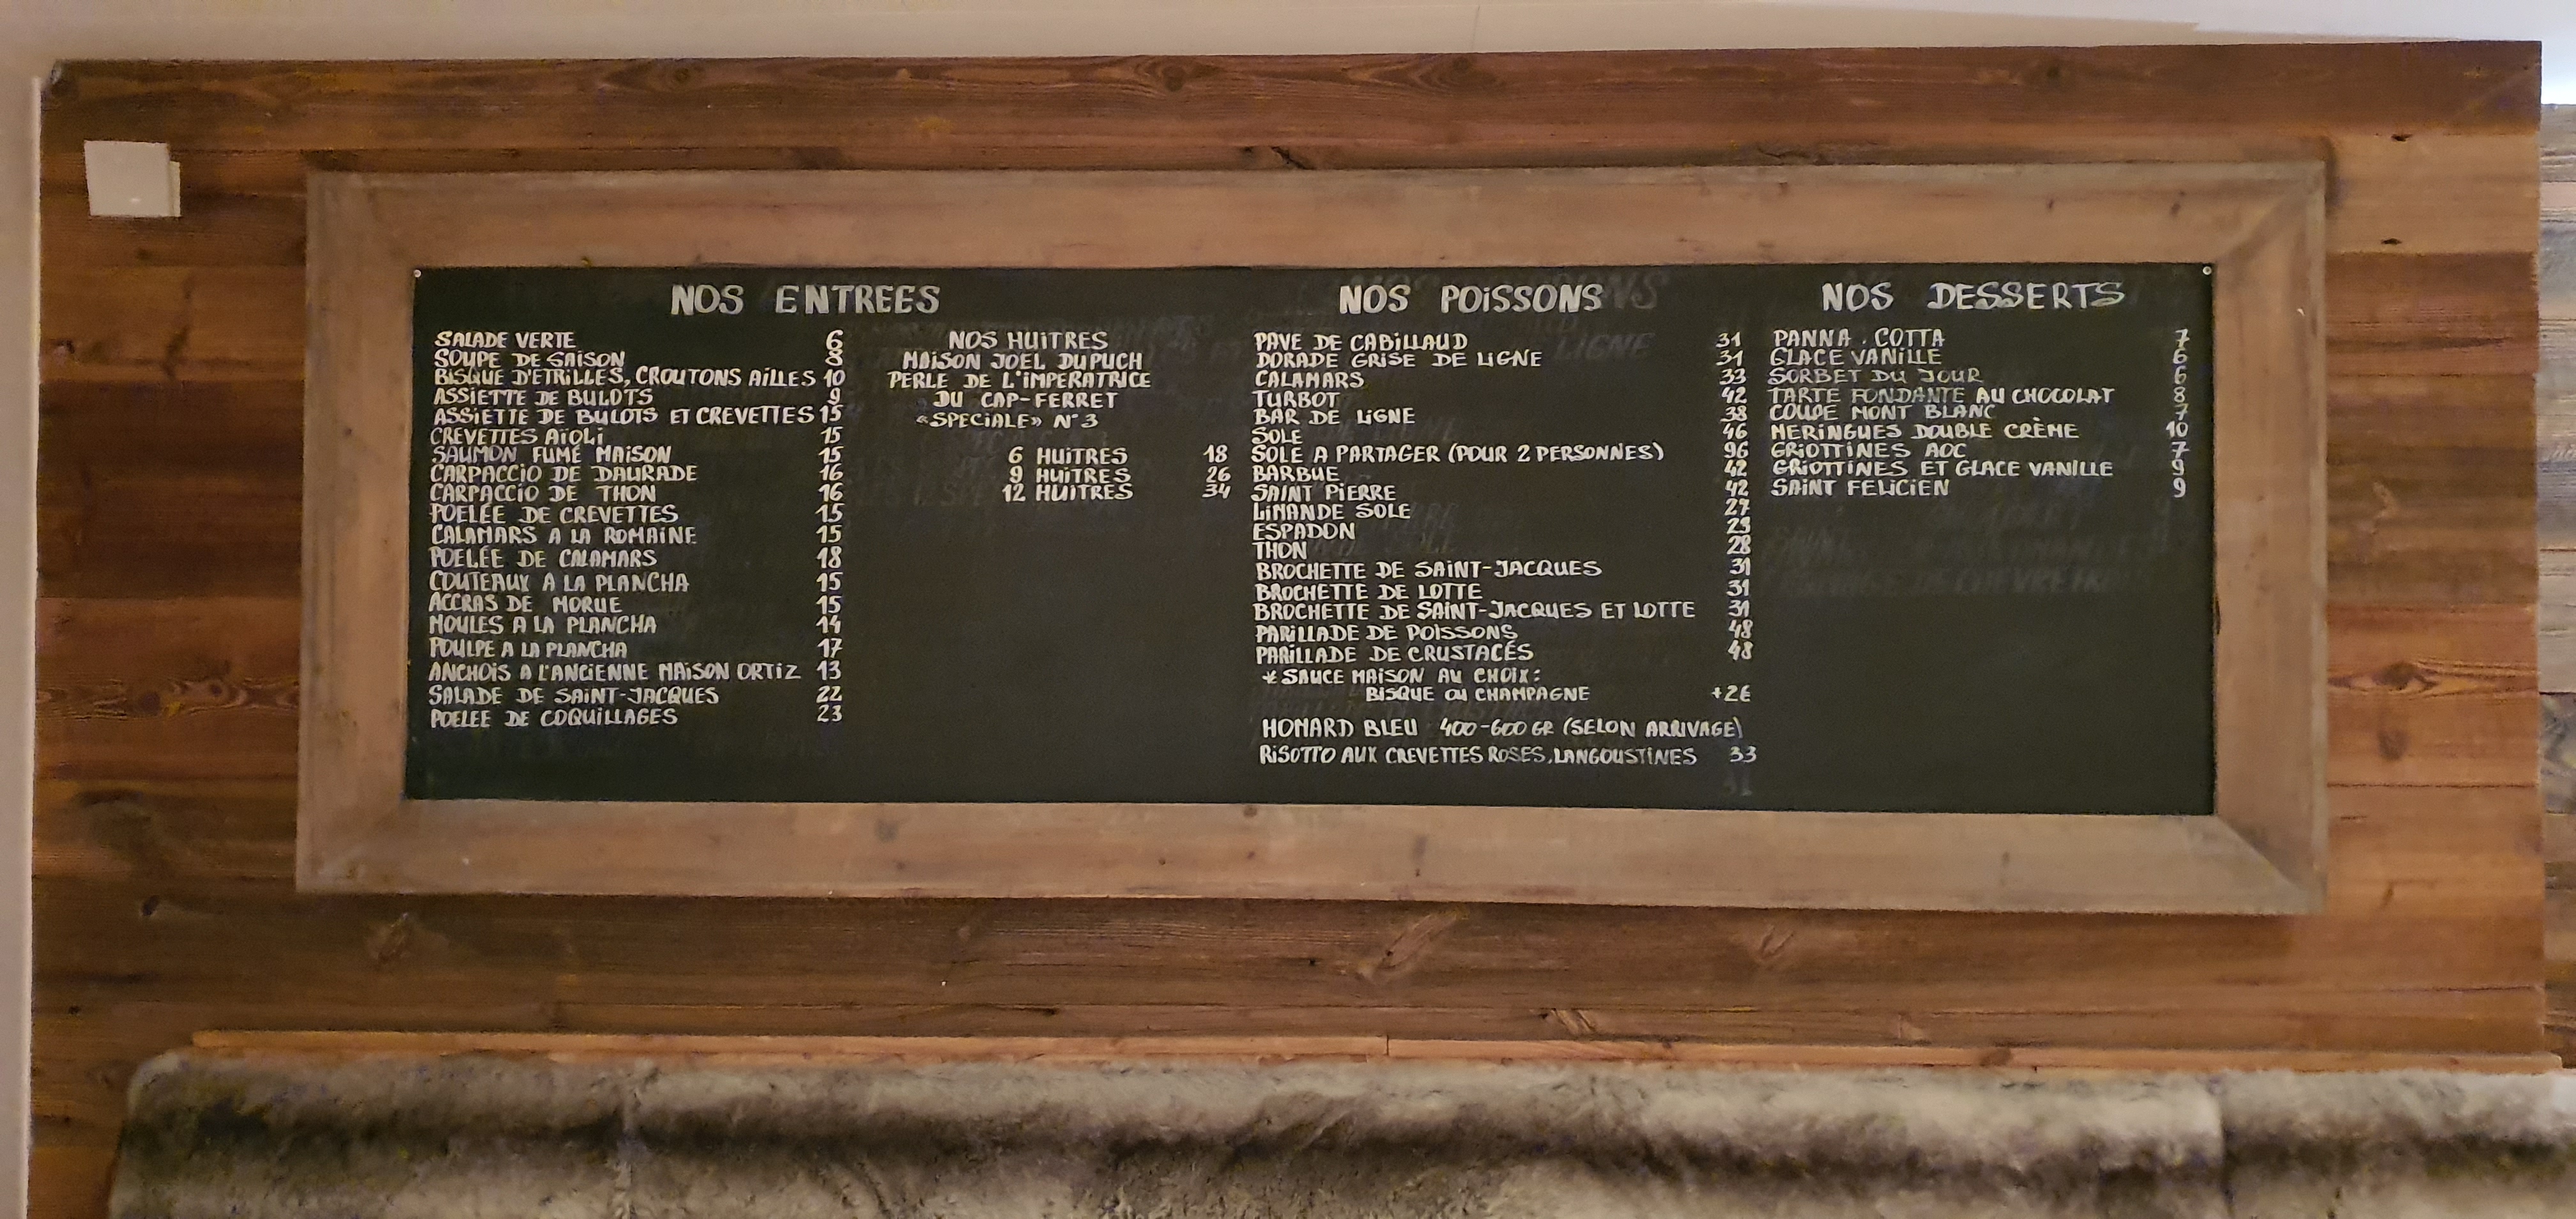 NOS ENTREES
SALADE VERTE 6
SOUPE DE SAISON 8
BISQUE D'ETRILLES, CROUTONS AILLES 10
ASSIETTE DE BULOTS 9
ASSIETTE DE BULOTS ET CREVETTES 15
CREVETTES AÏOLI 15
SAUMON FUMÉ MAISON 15
CARPACCIO DE DAURADE 16
CARPACCIO DE THON 16
POELÉE DE CREVETTES 15
CALAMARS A LA ROMAINE 15
POELÉE DE CALAMARS 18
COUTEAUX A LA PLANCHA 15
ACCRAS DE MORUE 15
MOULES A LA PLANCHA 14
POULPE A LA PLANCHA 17
ANCHOIS A L'ANCIENNE MAISON ORTIZ 13
SALADE DE SAINT-JACQUES 22
POELEE DE COQUILLAGES 23
NOS HUITRES
MAISON JOEL DUPUCH
PERLE DE L'IMPERATRICE
DU CAP-FERRET
«SPECIALE» N°3
6 HUITRES 18
9 HUITRES 26
12 HUITRES 34
NOS POISSONS
PAVE DE CABILLAUD 31
DORADE GRISE DE LIGNE 31
CALAMARS 33
TURBOT 42
BAR DE LIGNE 38
SOLE 46
SOLE A PARTAGER (POUR 2 PERSONNES) 96
BARBUE 42
SAINT PIERRE 42
LIMANDE SOLE 27
ESPADON 29
THON 28
BROCHETTE DE SAINT-JACQUES 31
BROCHETTE DE LOTTE 31
BROCHETTE DE SAINT-JACQUES ET LOTTE 31
PARILLADE DE POISSONS 48
PARILLADE DE CRUSTACÉS 48
* SAUCE MAISON AU CHOIX:
BISQUE OU CHAMPAGNE +2€
HOMARD BLEU 400-600 GR (SELON ARRIVAGE)
RISOTTO AUX CREVETTES ROSES, LANGOUSTINES 33
NOS DESSERTS
PANNA . COTTA 7
GLACE VANILLE 6
SORBET DU JOUR 6
TARTE FONDANTE AU CHOCOLAT 8
COUPE MONT BLANC 7
MERINGUES DOUBLE CRÈME 10
GRIOTTINES AOC 7
GRIOTTINES ET GLACE VANILLE 9
SAINT FELICIEN 9